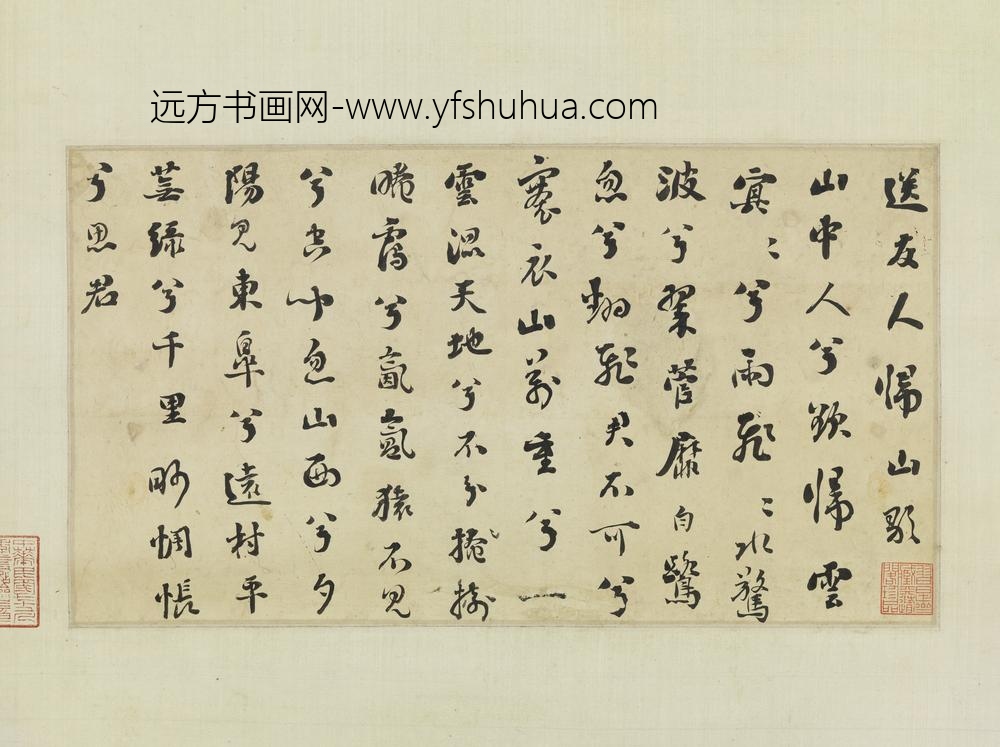 远方书画网-www.yfshuhua.com
送友人歸山歌
山中人兮欲歸雲
冥〻兮雨飛〻水驚
波兮翠菅靡白鷺
忽兮翻飛君不可兮
褰衣山萬重兮一
雲混天地兮不分掩樹
晻靄兮氤氳猿不見
兮空聞忽山西兮夕
陽見東皋兮遠村平
蕪綠兮千里眇惆悵
兮思君